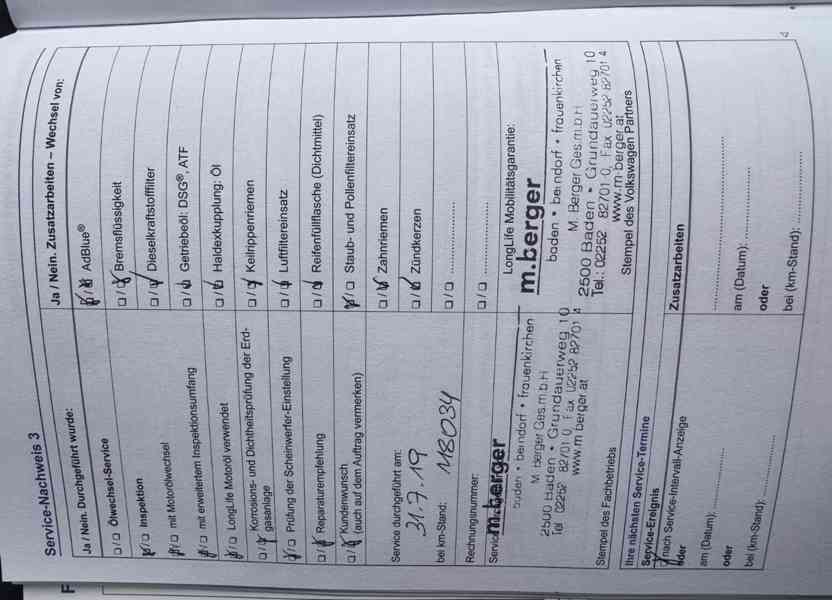 Service-Nachweis 3
Ja / Nein. Durchgeführt wurde:
□/□ Ölwechsel-Service
□/□ Inspektion
□/□ mit Motorölwechsel
□/□ mit erweitertem Inspektionsumfang
□/□ LongLife Motoröl verwendet
□/□ Korrosions- und Dichtheitsprüfung der Erd-
gasanlage
□/□ Prüfung der Scheinwerfer-Einstellung
□/□ Reparaturempfehlung
□/□ Kundenwunsch
(auch auf dem Auftrag vermerken)
Service durchgeführt am:
31.7.19
bei km-Stand: 118034
Rechnungsnummer:
m.berger
baden • berndorf • frauenkirchen
M. Berger Ges.m.b.H
2500 Baden • Grundauerweg 10
Tel 02252 82701 0, Fax 02252 82701 4
www.m-berger.at
Stempel des Fachbetriebs
Ja / Nein. Zusatzarbeiten – Wechsel von:
□/□ AdBlue®
□/□ Bremsflüssigkeit
□/□ Dieselkraftstofffilter
□/□ Getriebeöl: DSG®, ATF
□/□ Haldexkupplung: Öl
□/□ Keilrippenriemen
□/□ Luftfiltereinsatz
□/□ Reifenfüllflasche (Dichtmittel)
□/□ Staub- und Pollenfiltereinsatz
□/□ Zahnriemen
□/□ Zündkerzen
□/□ ....................
□/□ ....................
LongLife Mobilitätsgarantie:
m.berger
baden • berndorf • frauenkirchen
M. Berger Ges.m.b.H
2500 Baden • Grundauerweg 10
Tel.: 02252 82701 0, Fax 02252 82701 4
www.m-berger.at
Stempel des Volkswagen Partners
Ihre nächsten Service-Termine
Service-Ereignis
nach Service-Intervall-Anzeige
oder
am (Datum): ....................
oder
bei (km-Stand): ....................
Zusatzarbeiten
....................
am (Datum): ....................
oder
bei (km-Stand): ....................